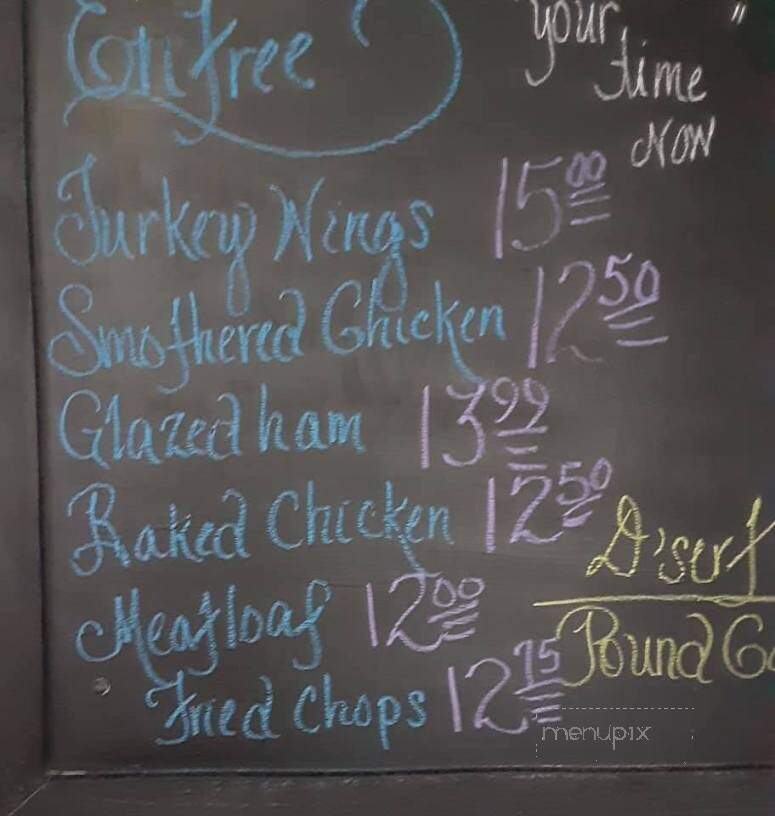 Entree
your "
time
NOW
Turkey Wings 15.00
Smothered Chicken 12.50
Glazed ham 13.99
Baked Chicken 12.50
Meatloaf 12.00
Fried Chops 12.75
D'sert
Pound
menupix